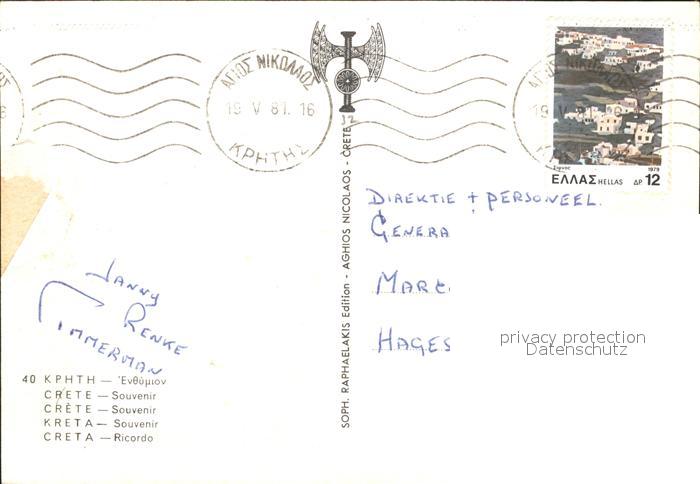 ΑΓΙΟΣ ΝΙΚΟΛΑΟΣ
19 V 81. 16
ΚΡΗΤΗΣ
1979
ΕΛΛΑΣ HELLAS ΔΡ 12
SOPH. RAPHAELAKIS Edition - AGHIOS NICOLAOS - CRETE
DIREKTIE + PERSONEEL.
GENERA
HAGES
privacy protection
Datenschutz
JANNY
RENKE
TIMMERMAN
40 ΚΡΗΤΗ — Ἐνθύμιον
CRETE — Souvenir
CRÈTE — Souvenir
KRETA — Souvenir
CRETA — Ricordo